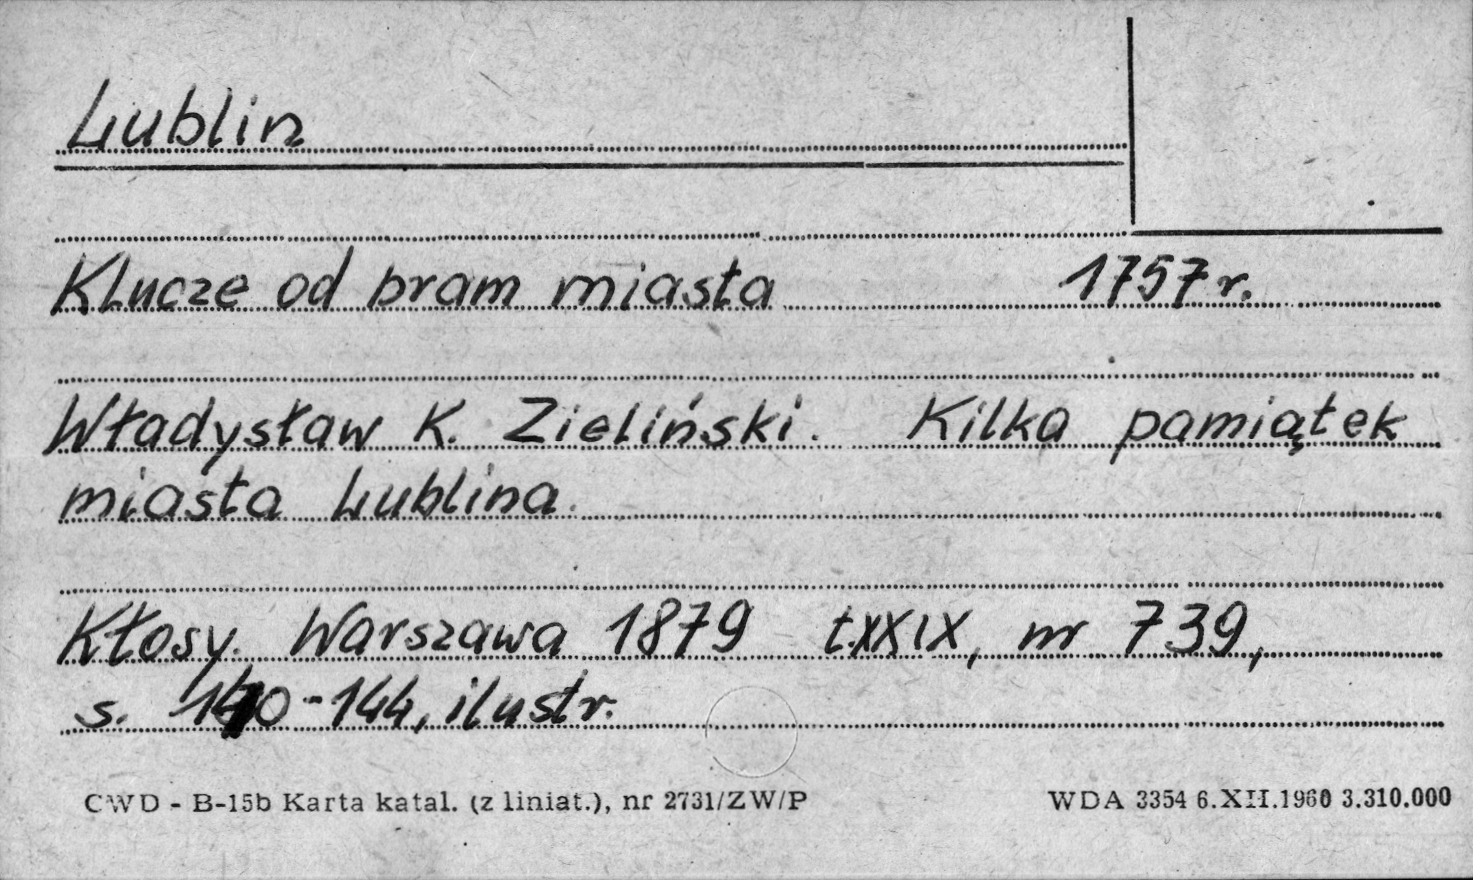 Lublin
Klucze od bram miasta 1757 r.
Władysław K. Zieliński. Kilka pamiątek
miasta Lublina.
Kłosy. Warszawa 1879 t.XXIX, nr 739,
s. 140-144, ilustr.
CWD - B-15b Karta katal. (z liniat.), nr 2731/ZW/P WDA 3354 6.XII.1960 3.310.000